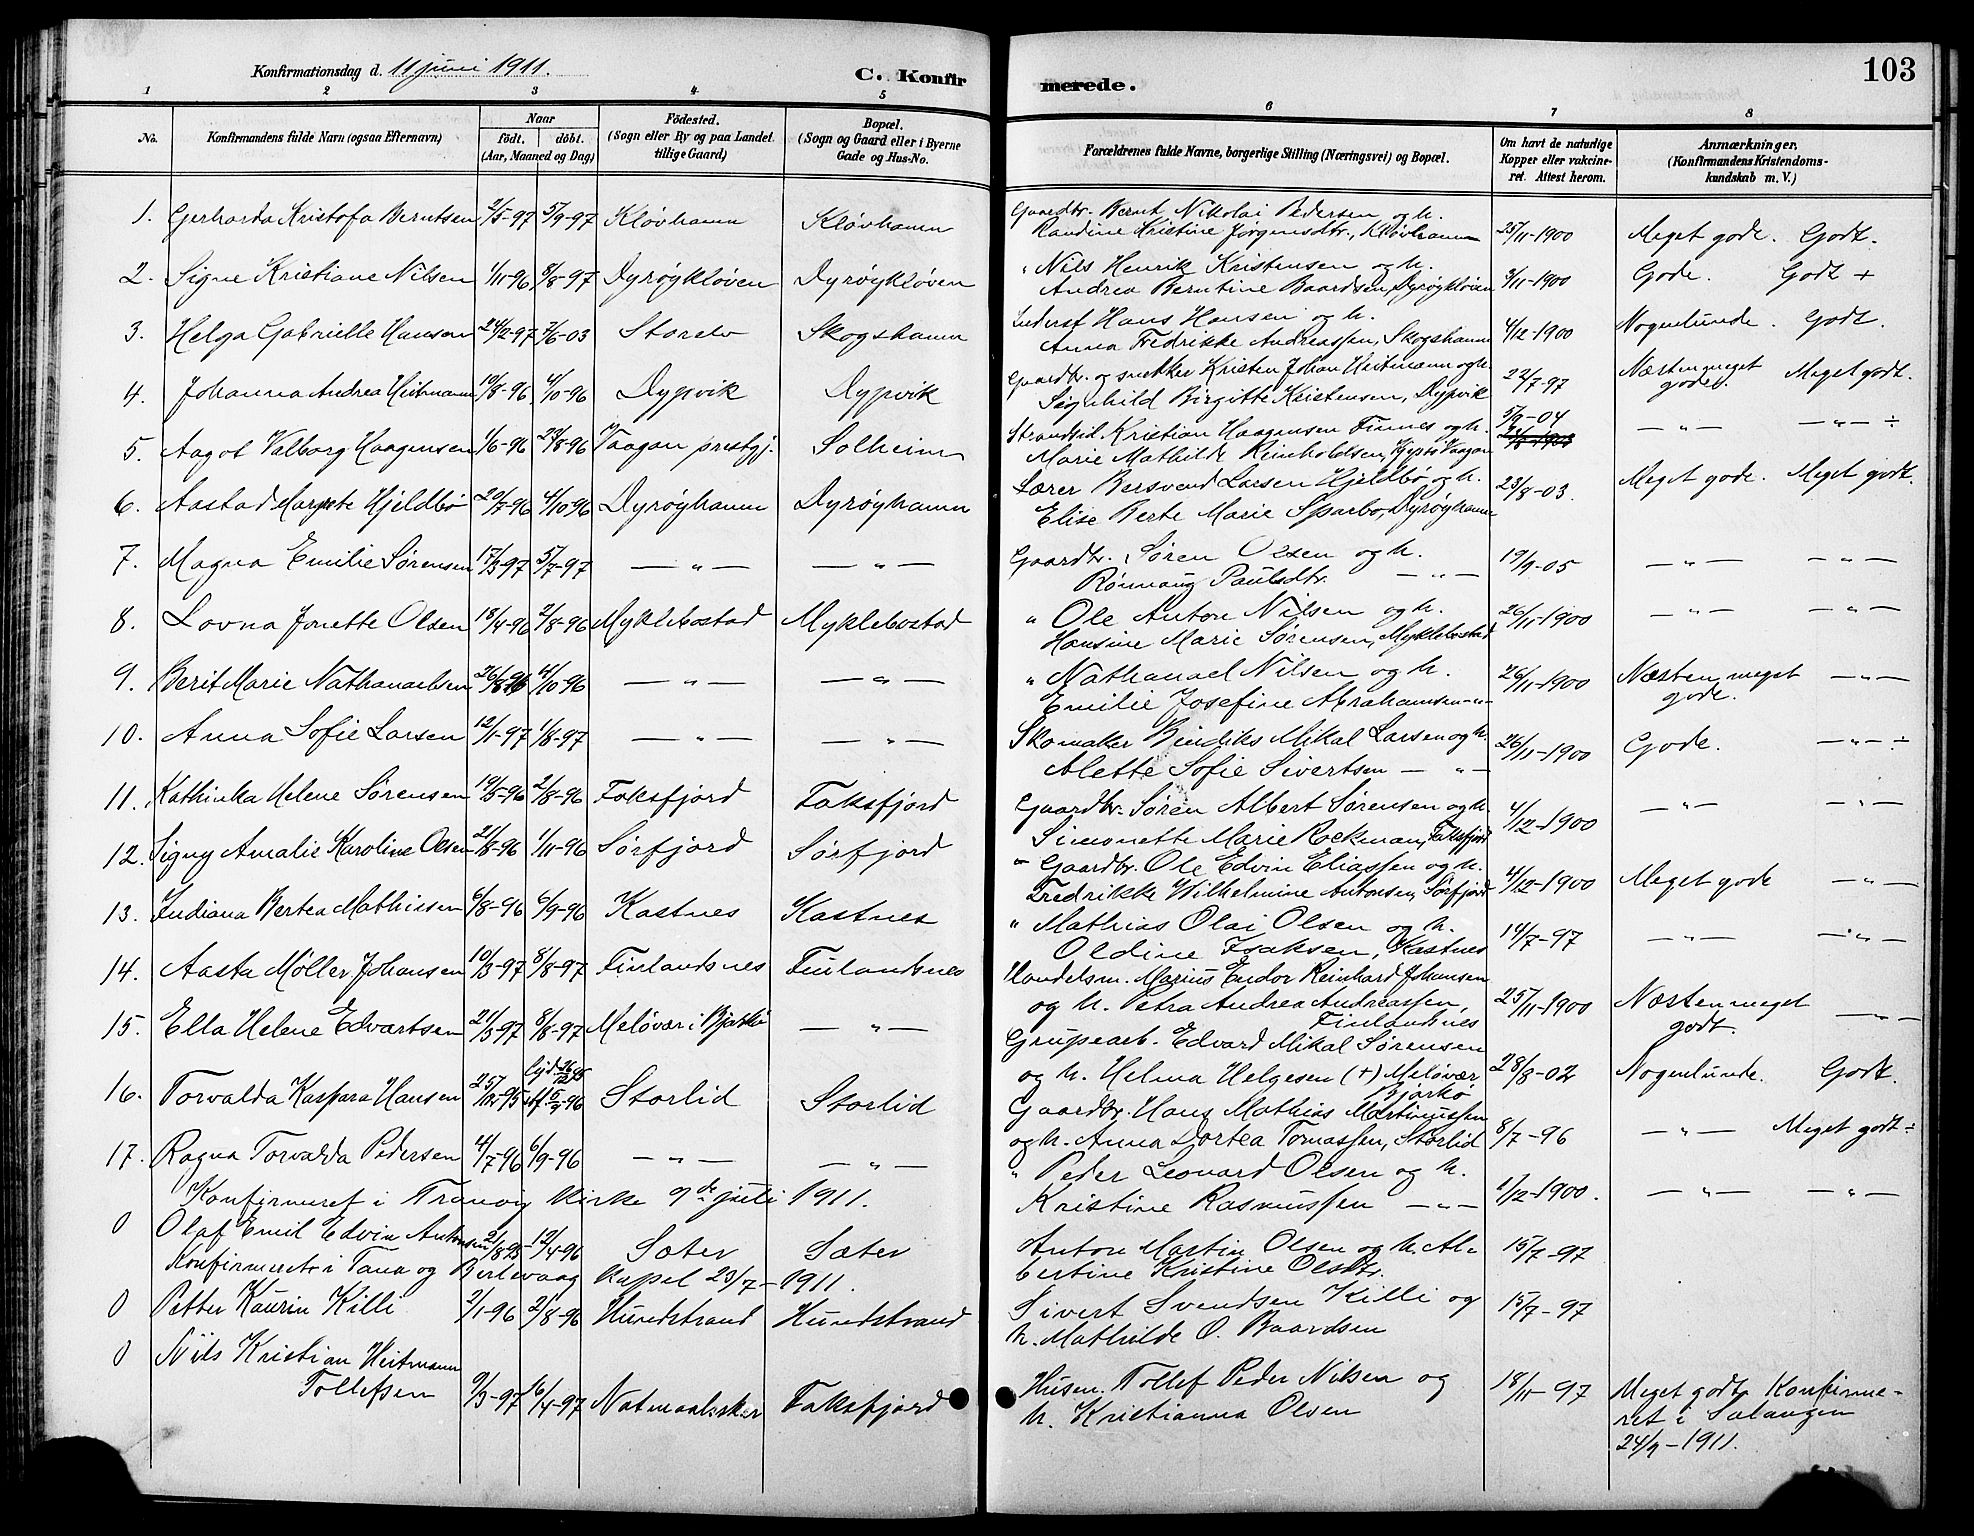 Konfirmationsdag d. 11 juni 1911.
C. Konfirmerede.
103
1 2 3 4 5 6 7 8
No. Konfirmandens fulde Navn (ogsaa Efternavn) Naar født. døbt. (Aar, Maaned og Dag) Fødested. (Sogn eller By og paa Landet tillige Gaard) Bopæl. (Sogn og Gaard eller i Byerne Gade og Hus-No. Forældrenes fulde Navne, borgerlige Stilling (Næringsvei) og Bopæl. Om havt de naturlige Kopper eller vakcineret. Attest herom. Anmærkninger. (Konfirmandens Kristendomskundskab m. V.)
1. Gerharda Kristofa Berntsen 2/5-97 5/9-97 Kløvhamn Kløvhamn Gaardbr. Bernt Nikolai Pedersen og h.
Randine Kristine Jørgensdtr., Kløvhamn 25/11-1900 Meget gode. Godt.
2. Signe Kristiane Nilsen 1/11-96 8/8-97 Dyrøykløven Dyrøykløven " Nils Henrik Kristensen og h.
Andrea Berntine Baardsen, Dyrøykløven 3/11-1900 Gode. Godt +
3. Helga Gabrielle Hansen 24/2-97 7/6-03 Storelv Skogshamn Inderst Hans Hansen og h.
Anna Fredrikke Andreassen, Skogshamn 4/12-1900 Nogenlunde. Godt.
4. Johanna Andrea Heitmann 10/8-96 4/10-96 Dypvik Dypvik Gaardbr. og snekker Kristen Johan Heitmann og h.
Signhild Birgitte Kristensen, Dypvik 22/7-97 Næsten meget gode. Meget godt.
5. Aagot Valborg Haagensen 1/6-96 23/8-96 Vaagan prestgj. Solheim Strandsid. Kristian Haagensen Finnes og h.
Marie Mathilde Reinholdsen, Kjepsø Vaagan 5/9-04 — " — — " — ÷
6. Aastad Margrete Hjeldbø 20/7-96 4/10-96 Dyrøyhamn Dyrøyhamn Lærer Bersvend Larsen Hjeldbø og h.
Elise Berte Marie Sparbo, Dyrøyhamn 23/8-03. Meget gode. Meget godt.
7. Magna Emilie Sørensen 17/3-97 5/7-97 — " — — " — Gaardbr. Søren Olsen og h.
Rønnaug Paulsdtr. — " — 19/9-05 — " — — " —
8. Lovna Jonette Olsen 18/4-96 2/8-96 Myklebostad Myklebostad " Ole Anton Nilsen og h.
Hansine Marie Sørensen, Myklebostad 26/11-1900 — " — — " —
9. Berit Marie Nathanaelsen 26/8-96 4/10-96 — " — — " — " Nathanael Nilsen og h.
Emilie Josefine Abrahamsen — " — 26/11-1900 Næsten meget gode. — " —
10. Anna Sofie Larsen 12/1-97 1/8-97 — " — — " — Skomaker Bendiks Mikal Larsen og h.
Alette Sofie Sivertsen — " — 26/11-1900 Gode. — " — ÷
11. Kathinka Helene Sørensen 19/5-96 2/8-96 Faksfjord Faksfjord Gaardbr. Søren Albert Sørensen og h.
Simonette Marie Rockman, Faksfjord 4/12-1900 — " — — " —
12. Signy Amalie Karoline Olsen 21/8-96 1/11-96 Sørfjord Sørfjord " Gaardbr. Ole Edvin Eliassen og h.
Fredrikke Wilhelmine Antonsen, Sørfjord 4/12-1900 Meget gode — " —
13. Indiana Bertea Mathissen 6/8-96 6/9-96 Kastnes Kastnes " Mathias Olai Olsen og h.
Oldine Isaksen, Kastnes 14/7-97 — " — — " —
14. Aasta Møller Johansen 10/3-97 8/8-97 Finlandsnes Finlandsnes Handelsm. Marius Endor Reinhard Johansen
og h. Petra Andrea Andreassen, Finlandsnes 25/11-1900 Næsten meget godt. — " —
15. Ella Helene Edvartsen 21/3-97 8/8-97 Meløvær i Bjarkø — " — Grupearb. Edvard Mikal Sørensen
og h. Helma Helgesen (+) Meløvær, Bjarkø 28/8-02 Nogenlunde. Godt.
16. Torvalda Kaspara Hansen 25/12-95 hjd. 26/12 95 st. 5/4-96 Storlid Storlid Gaardbr. Hans Mathias Martinussen
og h. Anna Dortea Tomassen, Storlid 8/7-96 — " — Meget godt ÷
17. Ragna Torvalda Pedersen 4/7-96 6/9-96 — " — — " — " Peder Leonard Olsen og h.
Kristine Rasmussen — " — 1/12-1900. — " — — " —
Konfirmeret i Tranøy kirke 9de juli 1911.
0 Olaf Emil Edvin Antonsen 21/8 95 12/4-96 Sæter Sæter Anton Martin Olsen og h. Al-
bertine Kristine Olsdtr. 15/7-97
Konfirmeret i Tana og Berlevaag kapel 23/7-1911.
0 Petter Kaurin Killi 2/1-96 2/8-96 Hundstrand Hundstrand Sivert Svendsen Killi og
h. Mathilde O. Baardsen 15/7-97
0 Nils Kristian Heitmann
Tollefsen 9/3-97 16/4-97 Faksfjord Husm. Tollef Peder Nilsen og
h. Kristianna Olsen 18/11-97 Meget godt. Konfirme-
ret i Salangen
24/9-1911.